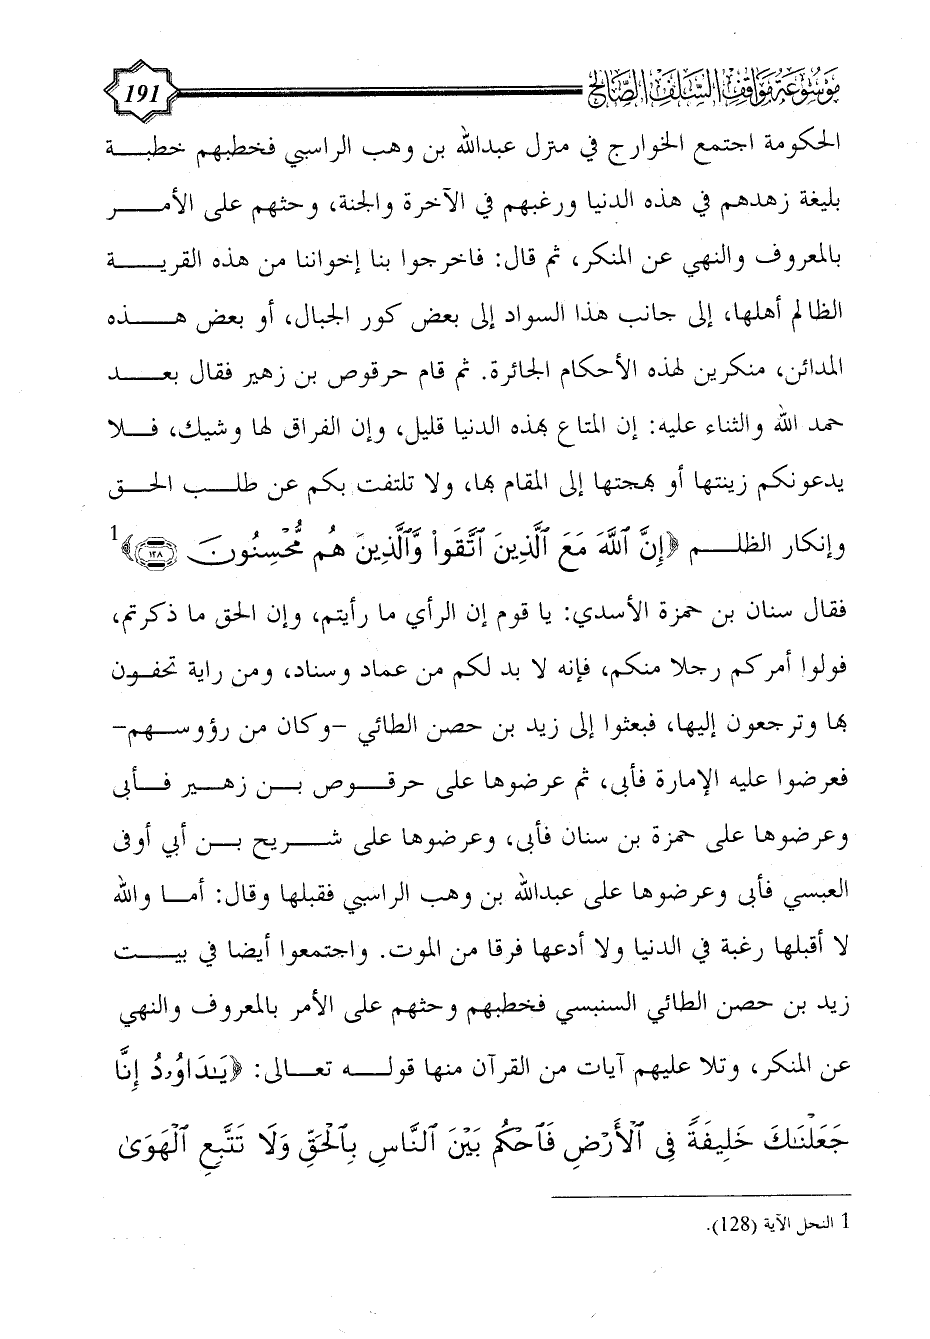 موسوعة مواقف السلف الصالح
191
الحكومة اجتمع الخوارج في منزل عبدالله بن وهب الراسبي فخطبهم خطبة
بليغة زهدهم في هذه الدنيا ورغبهم في الآخرة والجنة، وحثهم على الأمر
بالمعروف والنهي عن المنكر، ثم قال: فاخرجوا بنا إخواننا من هذه القرية
الظالم أهلها، إلى جانب هذا السواد إلى بعض كور الجبال، أو بعض هذه
المدائن، منكرين لهذه الأحكام الجائرة. ثم قام حرقوص بن زهير فقال بعد
حمد الله والثناء عليه: إن المتاع بهذه الدنيا قليل، وإن الفراق لها وشيك، فلا
يدعونكم زينتها أو بهجتها إلى المقام بها، ولا تلتفت بكم عن طلب الحق
وإنكار الظلم ﴿إِنَّ ٱللَّهَ مَعَ ٱلَّذِينَ ٱتَّقَواْ وَّٱلَّذِينَ هُم مُّحۡسِنُونَ ١٢٨﴾1
فقال سنان بن حمزة الأسدي: يا قوم إن الرأي ما رأيتم، وإن الحق ما ذكرتم،
فولوا أمركم رجلا منكم، فإنه لا بد لكم من عماد وسناد، ومن راية تحفون
بها وترجعون إليها، فبعثوا إلى زيد بن حصن الطائي -وكان من رؤوسهم-
فعرضوا عليه الإمارة فأبى، ثم عرضوها على حرقوص بن زهير فأبى
وعرضوها على حمزة بن سنان فأبى، وعرضوها على شريح بن أبي أوفى
العبسي فأبى وعرضوها على عبدالله بن وهب الراسبي فقبلها وقال: أما والله
لا أقبلها رغبة في الدنيا ولا أدعها فرقا من الموت. واجتمعوا أيضا في بيت
زيد بن حصن الطائي السنبسي فخطبهم وحثهم على الأمر بالمعروف والنهي
عن المنكر، وتلا عليهم آيات من القرآن منها قوله تعالى: ﴿يَٰدَاوُۥدُ إِنَّا
جَعَلۡنَٰكَ خَلِيفَةٗ فِي ٱلۡأَرۡضِ فَٱحۡكُم بَيۡنَ ٱلنَّاسِ بِٱلۡحَقِّ وَلَا تَتَّبِعِ ٱلۡهَوَىٰ
1 النحل الآية (128).